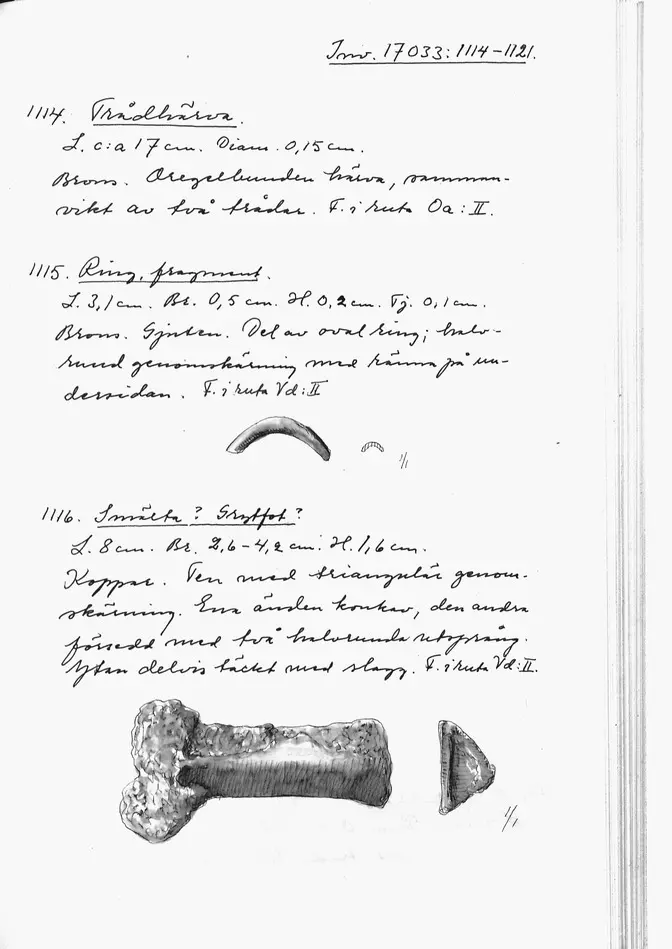 Inv. 17033:1114-1121.
1114. Trådhärva.
L. c:a 17 cm. Diam. 0,15 cm.
Brons. Oregelbunden härva, samman-
vikt av två trådar. F. i ruta Oa:II.
1115. Ring, fragment.
L. 3,1 cm. Br. 0,5 cm. H. 0,2 cm. Tj. 0,1 cm.
Brons. Gjuten. Del av oval ring; halv-
rund genomskärning med ränna på un-
dersidan. F. i ruta Vd:II
1/1
1116. Smälta? Grytfot?
L. 8 cm. Br. 2,6-4,2 cm. H. 1,6 cm.
Koppar. Ten med triangulär genom-
skärning. Ena änden konkav, den andra
försedd med två halvrunda utsprång.
Ytan delvis täckt med slagg. F. i ruta Vd:II.
1/1